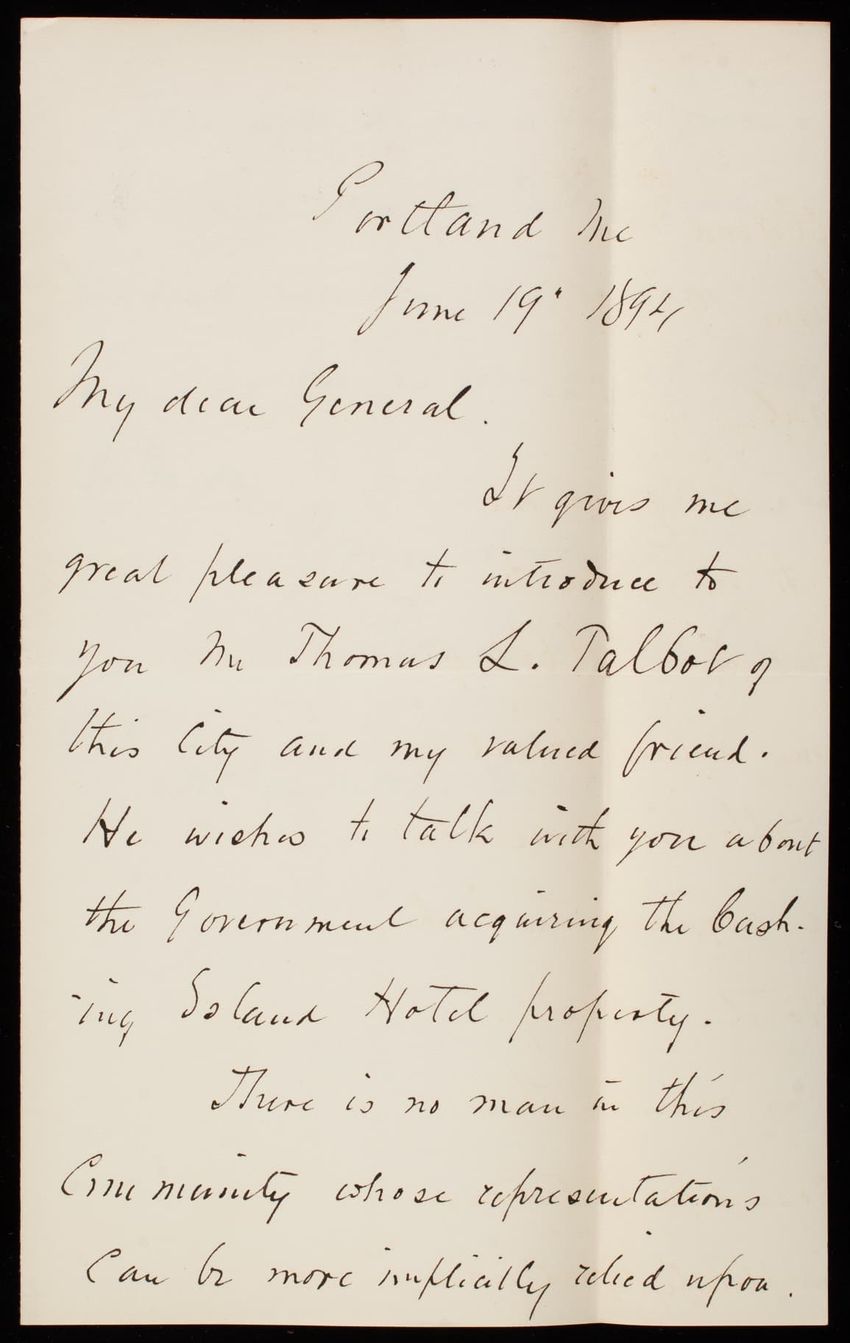 Portland Me
June 19" 1894
My dear General.
It gives me
great pleasure to introduce to
you Mr Thomas L. Talbot of
this City and my valued friend.
He wishes to talk with you about
the Government acquiring the Cush-
-ing Island Hotel property.
There is no man in this
Community whose representations
can be more implicitly relied upon.